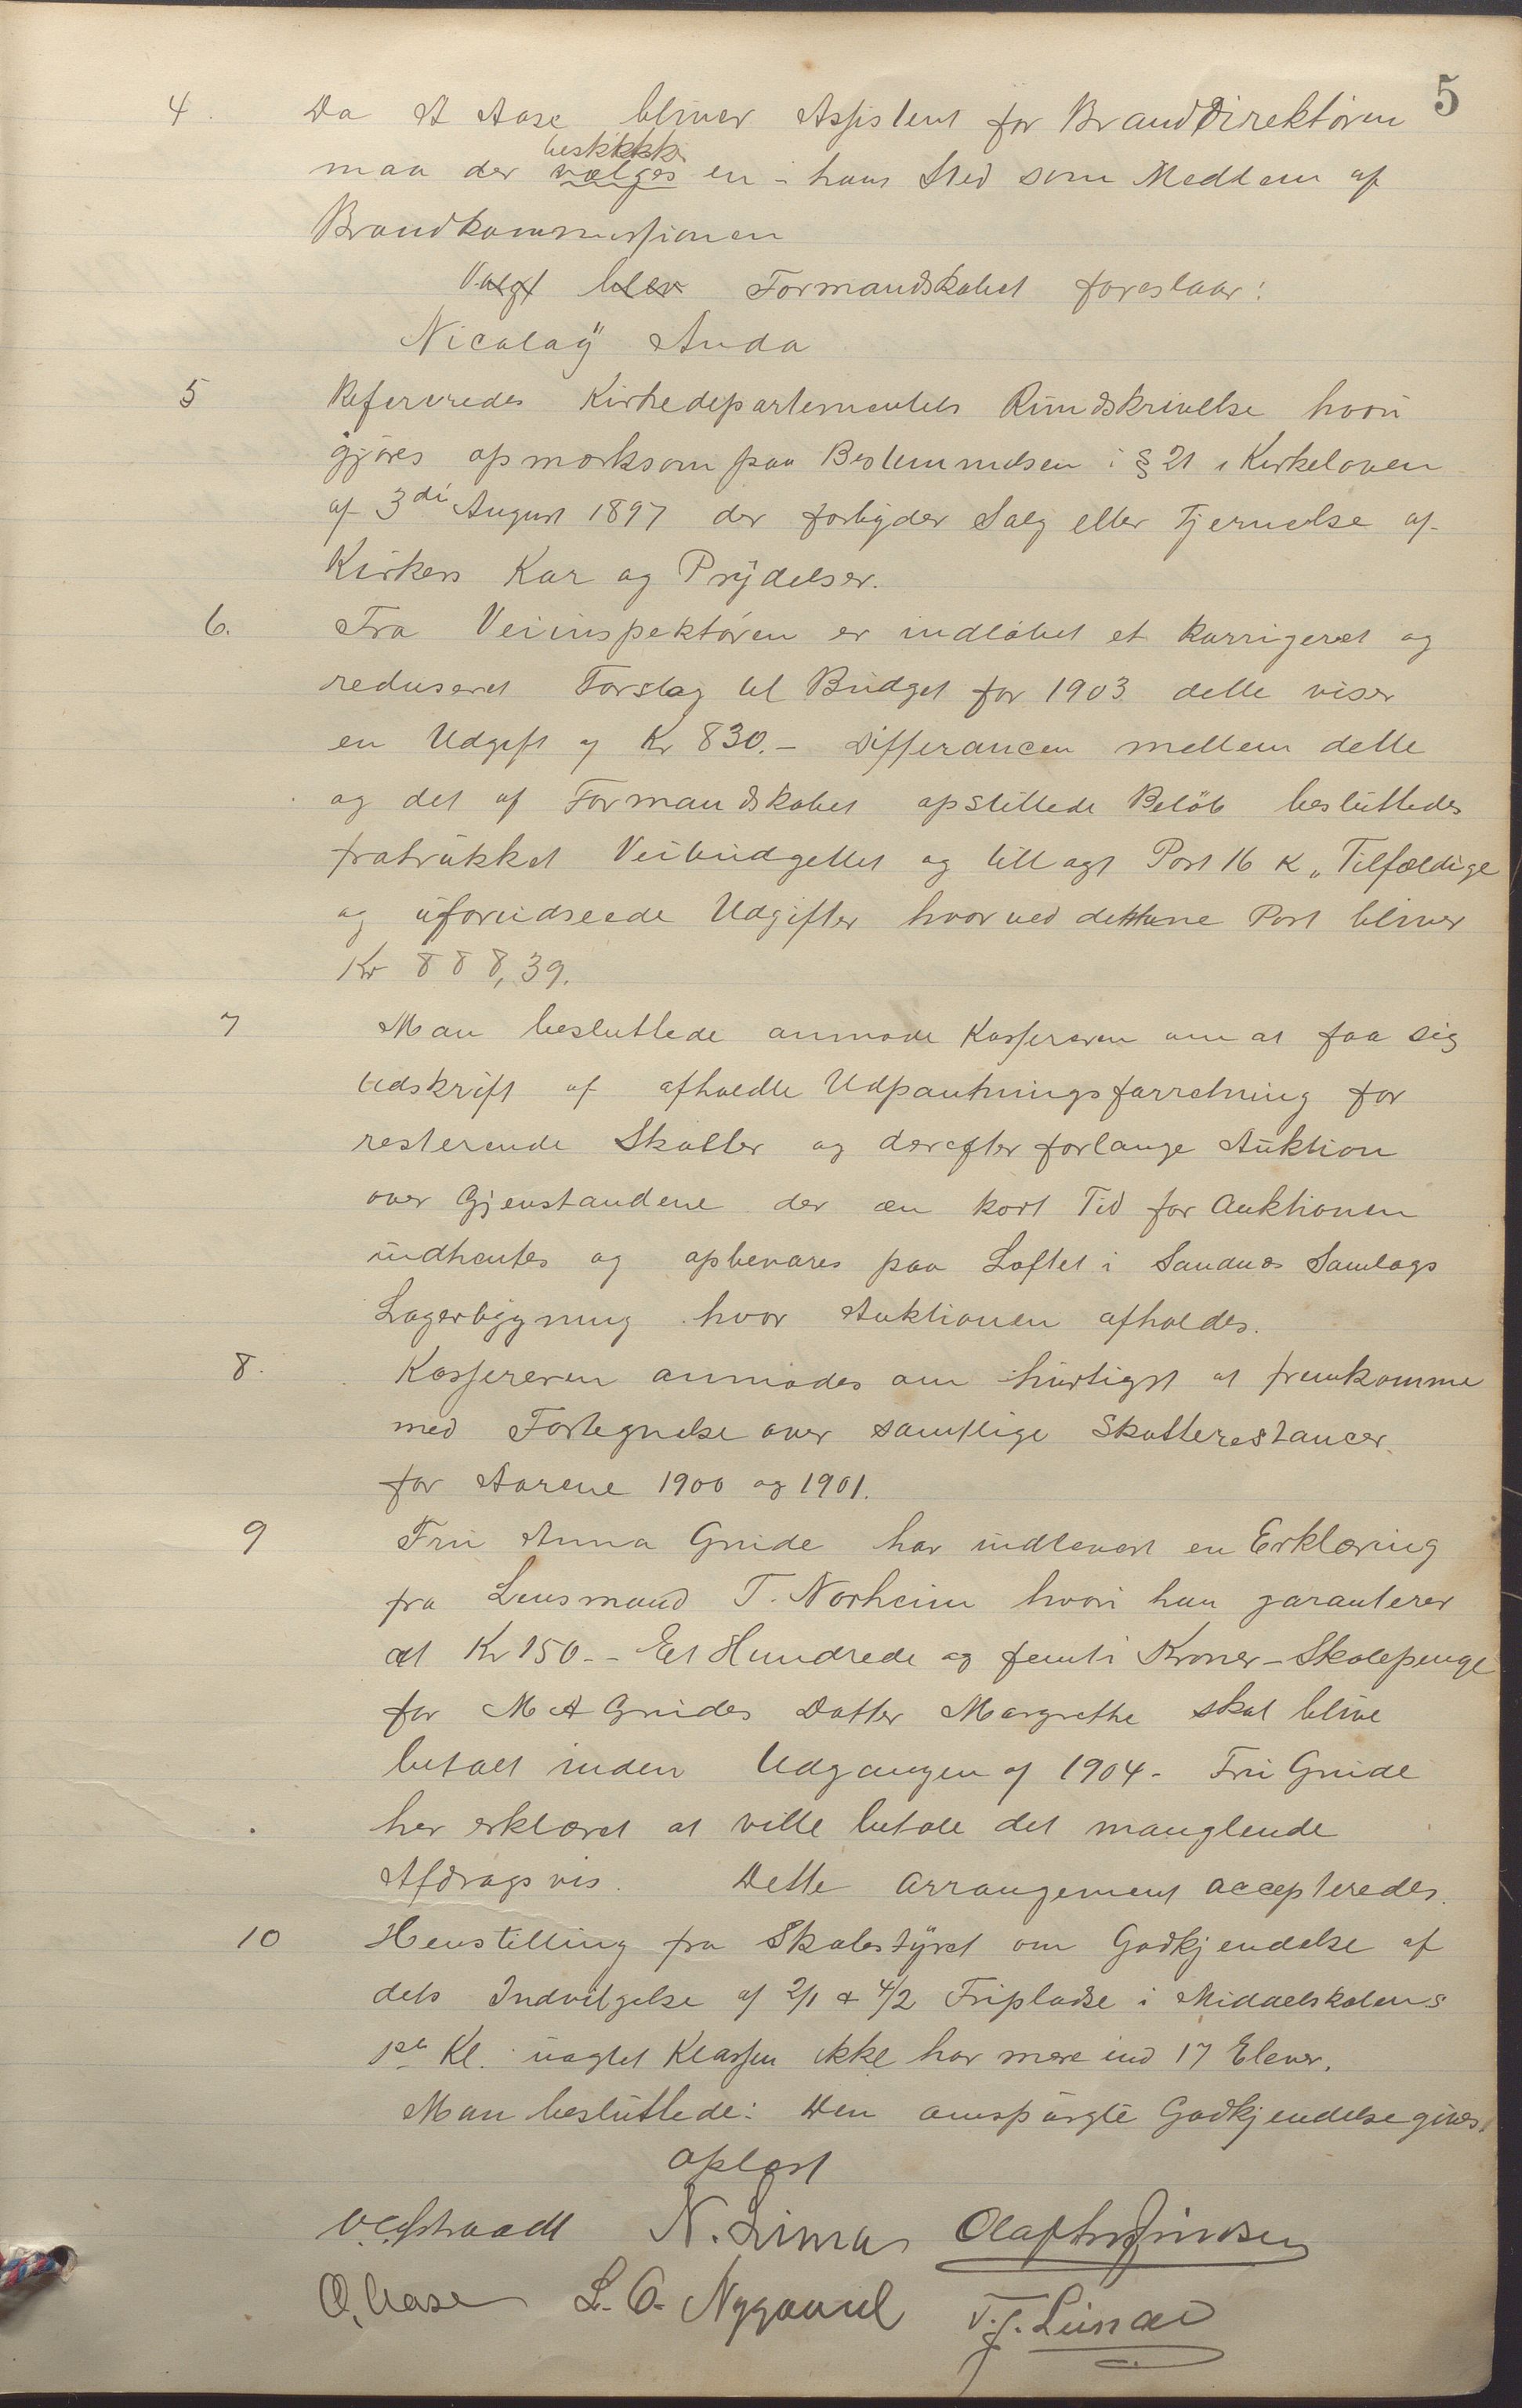 5
4. Da A Aase bliver Assistent for Branddirektøren
maa der vælges en i hans Sted som Medlem af
Brandkommissionen
Valgt blev Formandskabet foreslaar:
Nicolaÿ Anda
5 Refereredes Kirkedepartementets Rundskrivelse hvori
gjøres opmærksom paa Bestemmelsen i § 21 i Kirkeloven
af 3di August 1897 der forbyder Salg eller Fjernelse af
Kirkers Kar og Prydelser.
6. Fra Veiinspektøren er indløbet et korrigeret og
reduseret Forslag til Budget for 1903 dette viser
en Udgift af Kr 830.- Differancen mellem dette
og det af Formandskabet opstillede Beløb besluttedes
fratrukket Veibudgettet og tillagt Post 16 K „Tilfældige
og uforudseede Udgifter hvorved denne Post bliver
Kr 888,39.
7 Man besluttede anmode Kassereren om at faa sig
Udskrift af afholdte Udpantningsforretning for
resterende Skatter og derefter forlange Auktion
over Gjenstandene der en kort Tid før Auktionen
indhentes og opbevares paa Loftet i Sandnes Samlags
Lagerbygning hvor Auktionen afholdes.
8. Kassereren anmodes om hurtigst at fremkomme
med Fortegnelse over samtlige Skatterestancer
for Aarene 1900 og 1901.
9 Fru Anna Grude har indlevert en Erklæring
fra Lensmand T. Norheim hvori han garanterer
at Kr 150.- Et Hundrede og femti Kroner - Skolepenge
for M A Grudes Datter Margrethe skal blive
betalt inden Udgangen af 1904. Fru Grude
har erklæret at ville betale det manglende
Afdragsvis. Dette Arrangement accepteredes.
10 Henstilling fra Skolestyret om Godkjendelse af
dets Indvilgelse af 2/1 & 4/2 Fripladse i Middelskolens
1ste Kl. uagtet Klassen ikke har mere end 17 Elever.
Man besluttede: Den omspurgte Godkjendelse gives.
Oplæst
N. Lima
O. Aase L. O. Nygaard T. J. Lunde